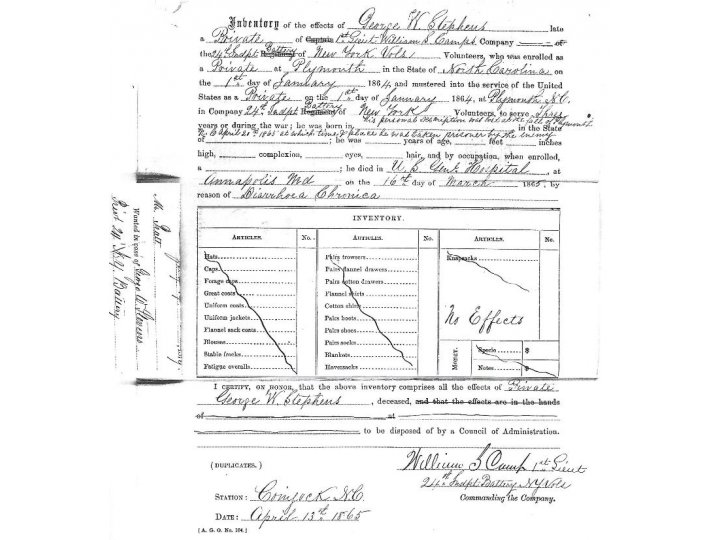 Inventory of the effects of George W. Stephens late
a Private of Captain 1st Lieut William S. Camps Company — of
the 24th Indpt Battery Regiment of New York Vols Volunteers, who was enrolled as
a Private at Plymouth in the State of North Carolina on
the 1st day of January 1864, and mustered into the service of the United
States as a Private on the 1st day of January 1864, at Plymouth N.C.
in Company 24th Indpt Battery Regiment of New York Volunteers, to serve Three
years or during the war; he was born in His personal description was lost at the fall of Plymouth in the State
N.C. April 20th 1865 at which time & place he was taken prisoner by the enemy
of ; he was years of age, feet inches
high, complexion, eyes, hair, and by occupation, when enrolled,
a ; he died in U.S. Genl. Hospital, at
Annapolis Md on the 16th day of March 1865, by
reason of Diarrhoea Chronica
INVENTORY.
ARTICLES. No. ARTICLES. No. ARTICLES. No.
Hats Pairs trowsers Knapsacks
Caps Pairs flannel drawers
Forage caps Pairs cotton drawers
Great coats Flannel shirts
Uniform coats Cotton shirts
Uniform jackets Pairs boots
No Effects
Flannel sack coats Pairs shoes
Blouses Pairs socks
Stable frocks Blankets
Fatigue overalls Haversacks
MONEY.
Specie $
Notes $
I CERTIFY, ON HONOR, that the above inventory comprises all the effects of Private
George W. Stephens, deceased, and that the effects are in the hands
of at
to be disposed of by a Council of Administration.
(DUPLICATES.)
William S Camp 1st Lieut
24th Indpt Battery N.Y. Vols
Commanding the Company.
STATION: Coinjock N.C.
DATE: April 13th 1865
[A. G. O. No. 104.]
Wanted in case of George W. Stevens
24 N.Y. Battery